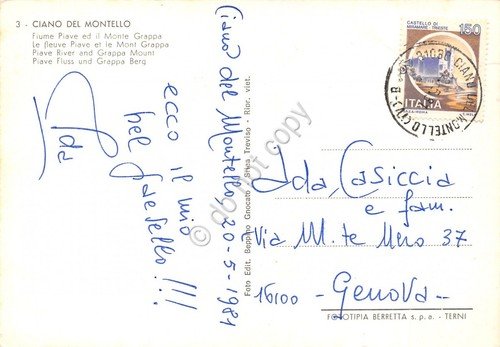 3 - CIANO DEL MONTELLO
Fiume Piave ed il Monte Grappa
Le fleuve Piave et le Mont Grappa
Piave River and Grappa Mount
Piave Fluss und Grappa Berg
Ciano del Montello, 20-5-1981
ecco il mio
bel paesello!!!
Ida
Foto Edit. Beppino Crocato Selva Treviso - Ripr. viet.
CASTELLO DI
MIRAMARE - TRIESTE
150
ITALIA
CIANO DEL MONTELLO (TV)
Ida Casiccia
e fam.
Via M.te Nero 37
16100 - GENOVA -
FOTOTIPIA BERRETTA s.p.a. - TERNI
do not copy